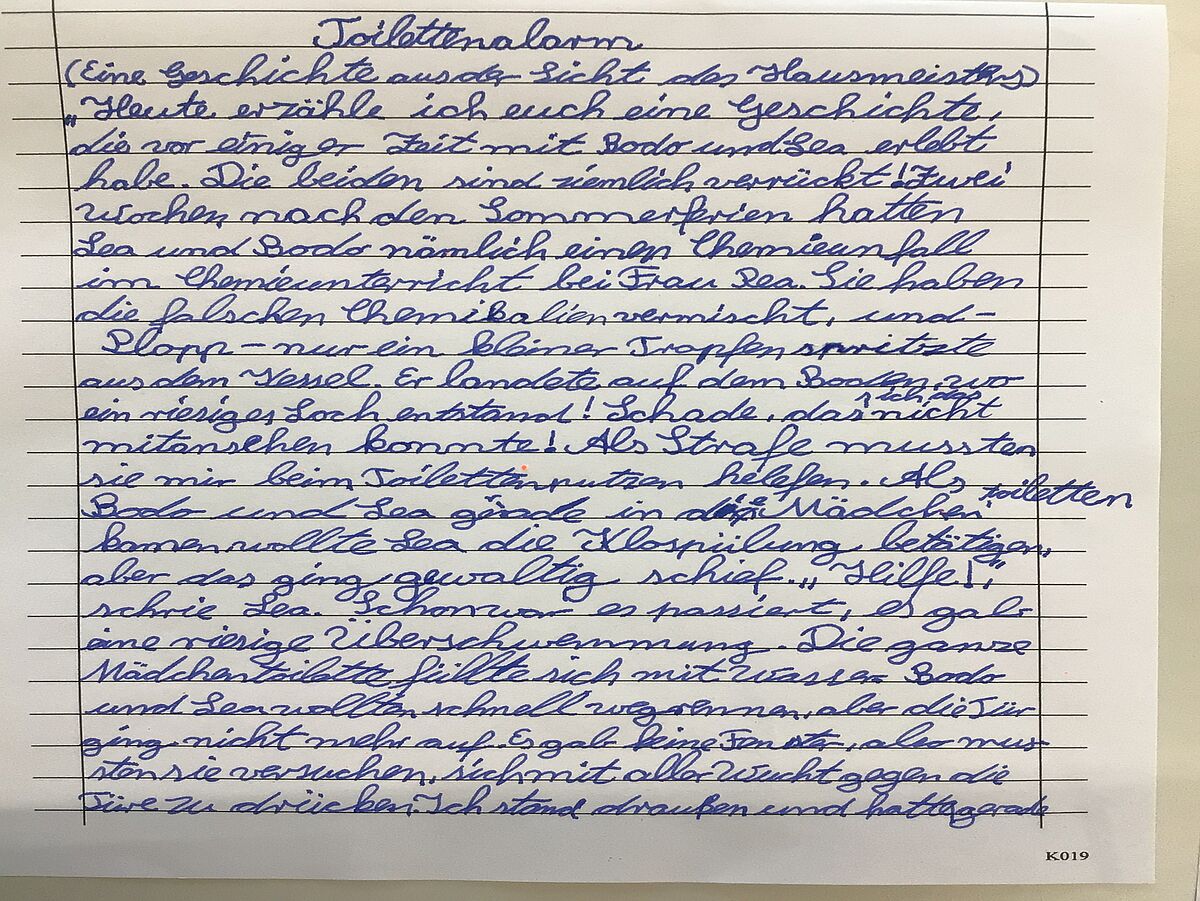 Toilettenalarm
(Eine Geschichte aus der Sicht des Hausmeisters)
„Heute erzähle ich euch eine Geschichte,
die vor einiger Zeit mit Bodo und Lea erlebt
habe. Die beiden sind ziemlich verrückt! Zwei
Wochen nach den Sommerferien hatten
Lea und Bodo nämlich einen Chemieunfall
im Chemieunterricht bei Frau Rea. Sie haben
die falschen Chemikalien vermischt, und -
Plopp - nur ein kleiner Tropfen spritzte
aus dem Kessel. Er landete auf dem Boden, wo
ein riesiges Loch entstand! Schade, dass ich das nicht
mitansehen konnte! Als Strafe mussten
sie mir beim Toilettenputzen helefen. Als
Bodo und Lea gerade in die Mädchentoiletten
kamen, wollte Lea die Klospülung betätigen,
aber das ging gewaltig schief. „Hilfe!",
schrie Lea. Schon war es passiert, es gab
eine riesige Überschwemmung. Die ganze
Mädchentoilette füllte sich mit Wasser. Bodo
und Lea wollten schnell wegrennen, aber die Tür
ging nicht mehr auf. Es gab keine Fenster, also mus-
sten sie versuchen, sich mit aller Wucht gegen die
Türe zu drücken. Ich stand draußen und hatte gerade
K019